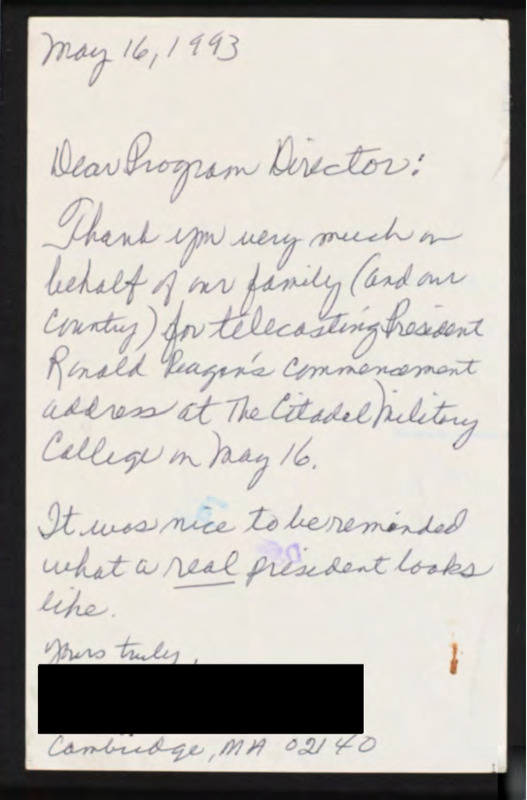 May 16, 1993
Dear Program Director:
Thank you very much on
behalf of our family (and our
country) for telecasting President
Ronald Reagan's commencement
address at The Citadel Military
College on May 16.
It was nice to be reminded
what a real president looks
like.
Yours truly,
Cambridge, MA 02140